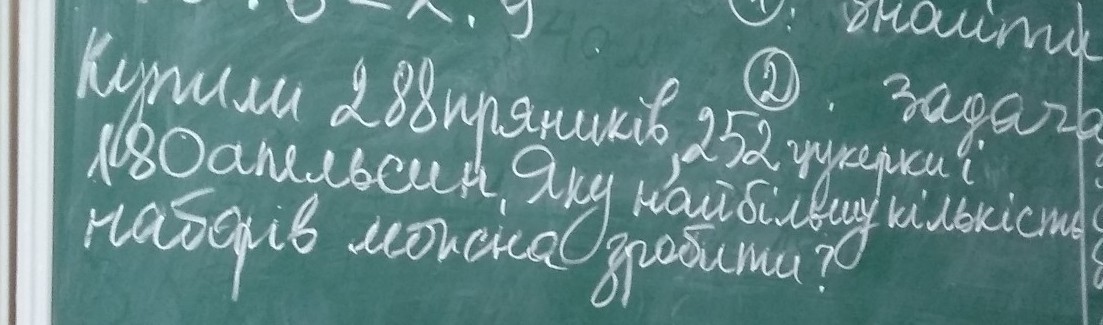 знайти
② . задача
Купили 288 пряників, 252 цукерки і
180 апельсин. Яку найбільшу кількість
наборів можна зробити?